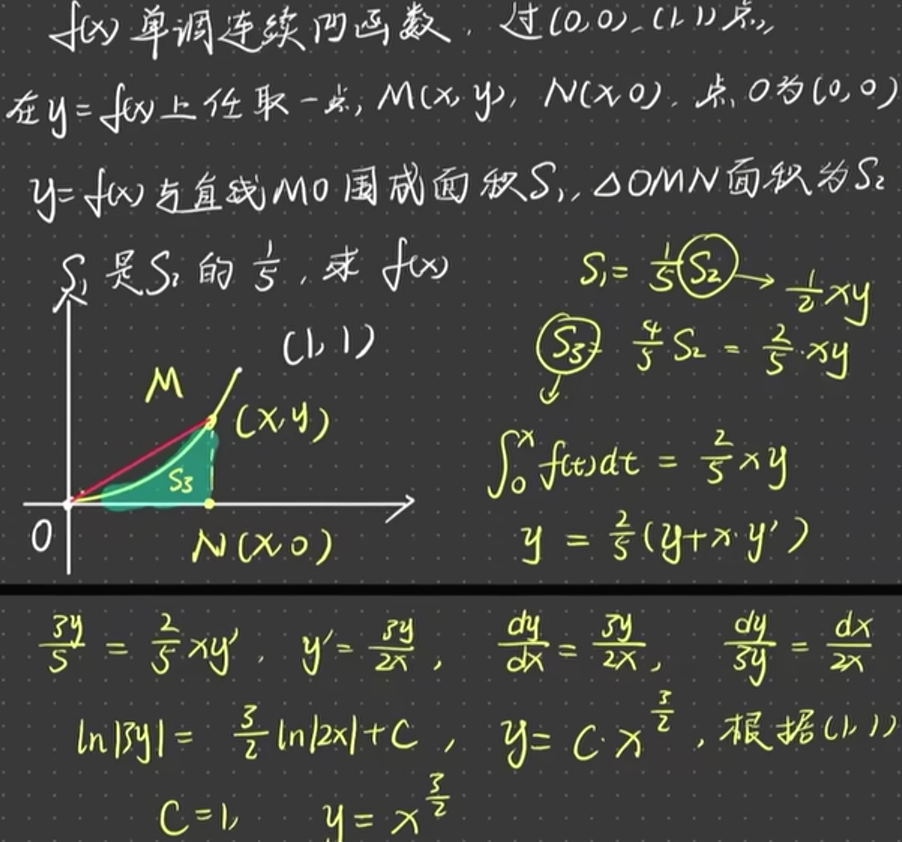 f(x) 单调连续凹函数, 过(0,0), (1,1)点,
在y=f(x)上任取一点, M(x,y), N(x,0), 点O为(0,0)
y=f(x)与直线MO围成面积S₁, △OMN面积为S₂
S₁是S₂的 1/5, 求 f(x)
S₁ = 1/5 S₂ → 1/2 xy
S₃ = 4/5 S₂ = 2/5 · xy
(1,1)
M
(x,y)
S₃
O
N(x,0)
∫₀ˣ f(t)dt = 2/5 xy
y = 2/5 (y+x·y′)
3y/5 = 2/5 xy′, y′ = 3y/2x, dy/dx = 3y/2x, dy/3y = dx/2x
ln|3y| = 3/2 ln|2x| + C, y = C·x^(3/2), 根据(1,1)
C=1, y = x^(3/2)